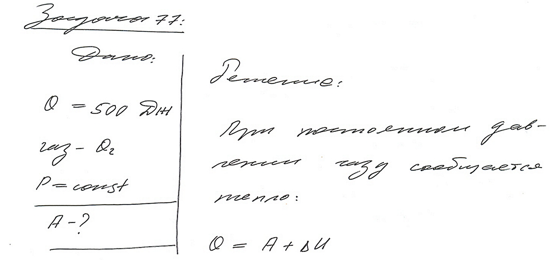 Задача 77:
Дано:
Q = 500 Дж
газ - O₂
P = const
A - ?
Решение:
При постоянном дав-
лении газу сообщается
тепло:
Q = A + ΔU